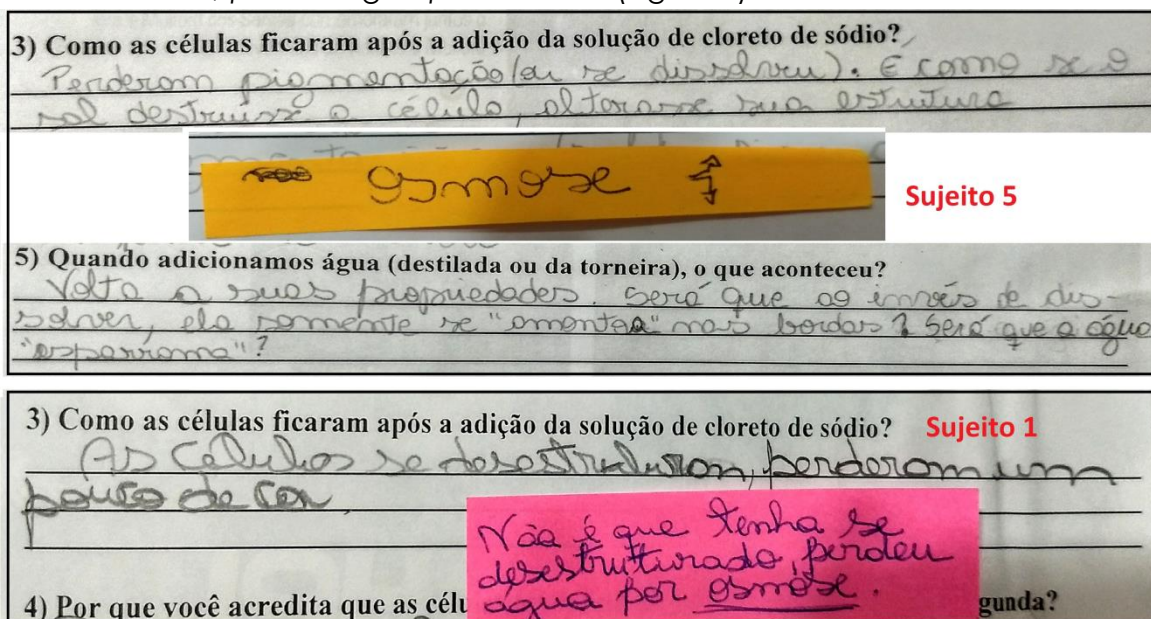 3) Como as células ficaram após a adição da solução de cloreto de sódio?
Perderam pigmentação (ou se dissolveu). É como se o
sal destruísse a célula, alterasse sua estrutura
osmose
Sujeito 5
5) Quando adicionamos água (destilada ou da torneira), o que aconteceu?
Volta a suas propriedades. Será que ao invés de dis-
solver, ela somente se "amontoa" nas bordas? Será que a água
"esparrama"?
3) Como as células ficaram após a adição da solução de cloreto de sódio? Sujeito 1
As Células se desestruturon, perderam um
pouco de cor.
Não é que tenha se
desestruturado, perdeu
água por osmose.
4) Por que você acredita que as célu gunda?